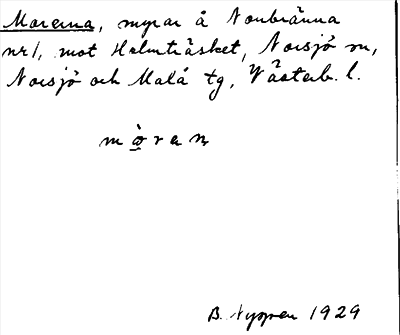 Morerna, myrar å Nonbränna
nr 1, mot Holmträsket, Norsjö sn,
Norsjö och Malå tg, Västerb. l.
mòran
B. Nygren 1929